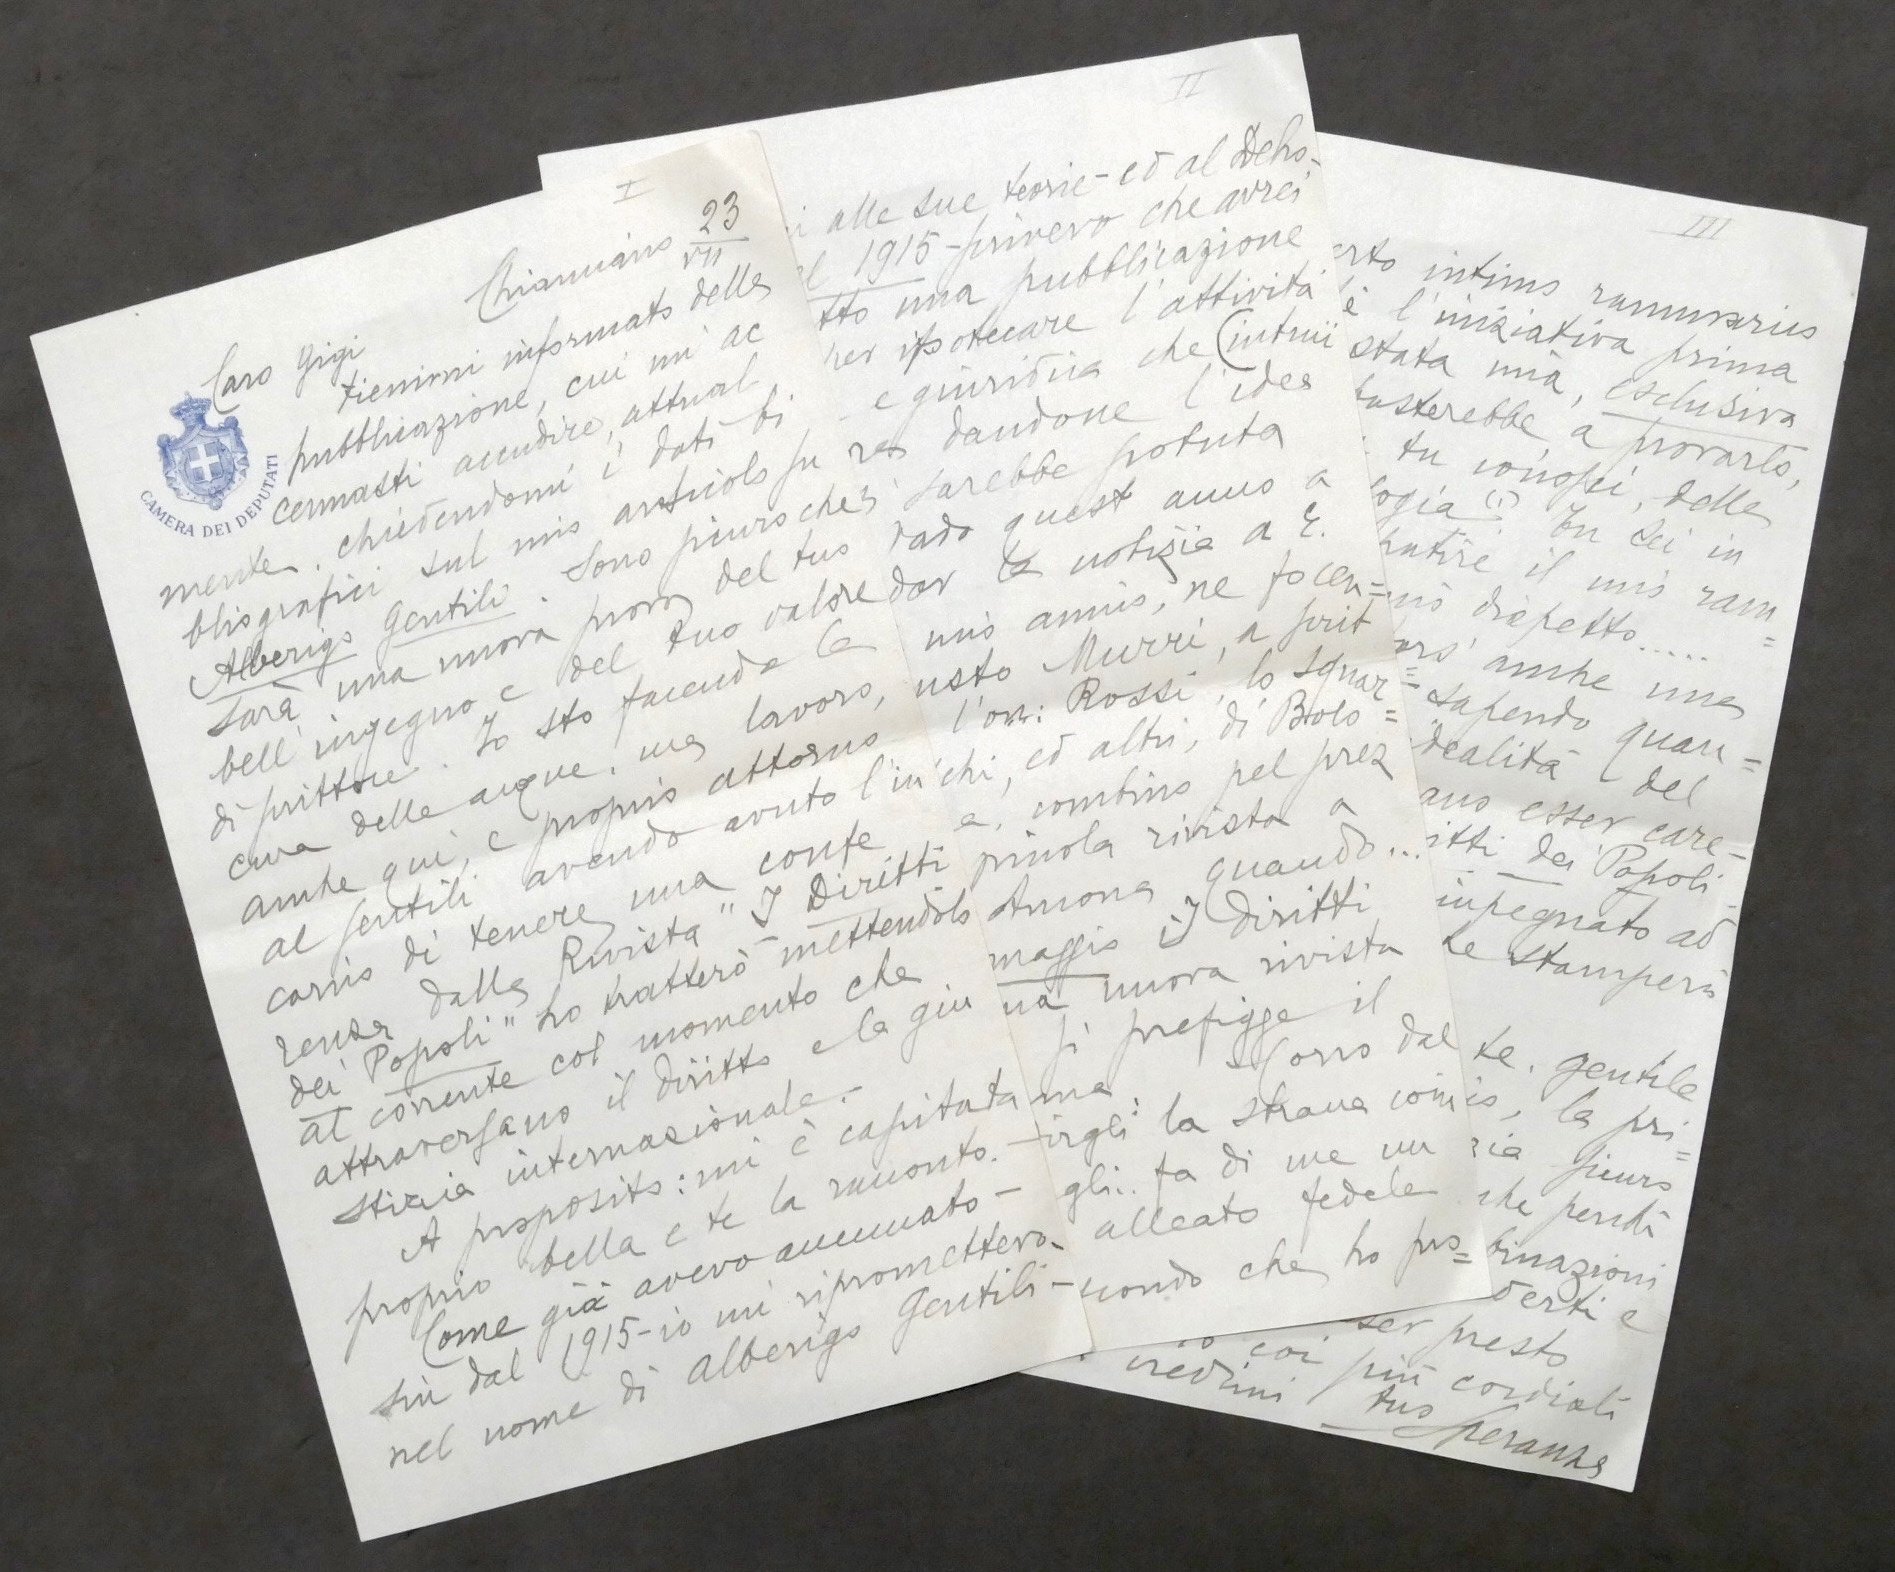 I
Chianciano 23
VII
Caro Gigi
tienimi informato della
pubblicazione, cui mi ac
cennasti accudire, attual
mente, chiedendomi i dati bi
bliografici sul mio articolo su
Alberigo Gentili. Sono sicuro che
sarà una nuova prova del tuo
bell'ingegno e del tuo valore
di scrittore. Io sto facendo la
cura delle acque, ma lavoro,
anche qui, e proprio attorno
al Gentili avendo avuto l'in
carico di tenere una confe
renza dalla Rivista "I Diritti
dei Popoli" ho tratterò mettendolo
al corrente col momento che
attraversano il diritto e la giu
stizia internazionale.-
A proposito: mi è capitata
proprio bella e te la racconto.-
Come già avevo accennato-
sin dal 1915-io mi ripromettevo-
nel nome di Alberigo Gentili-
II
i alle sue teorie-ed al
l 1915-
che avrei
tto una pubblicazione
per ipotecare l'attività
e giuridica che (intuii
dandone l'idea
sarebbe potuta
quest'anno a
dar la notizia a
mio amico, ne
usto Murri, a scrit
l'on: Rossi, lo Squar=
chi, ed altri, di Bolo=
a, combino pel prez
piccola rivista a
Ancona quando...
maggio "I Diritti
na nuova rivista
si prefigge il
ma Corro dal
irgli la strana coin
gli.. fa di me un
alleato fedele
condo che ho pro=
III
erto intimo rammarico
è l'iniziativa prima
stata mia, esclusiva
basterebbe a provarlo,
tu conosci, della
logia (!) Tu sei in
il mio ram=
mio dispetto.....
anche una
sapendo quan=
dealità del
ano esser care-
itti dei Popoli-
impegnato ad
he stamperò
te, gentile
io, la pri=
ria sicuro
che perchè
binazioni
derti e
ser presto
io coi più cordiali
credimi
tuo Speranza
CAMERA DEI DEPUTATI